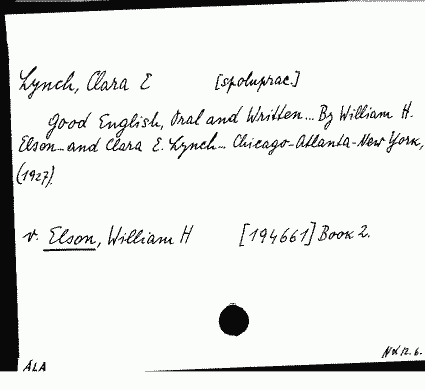 Lynch, Clara E [spoluprac.]
Good English, Oral and Written... By William H.
Elson... and Clara E. Lynch... Chicago-Atlanta-New York,
(1927).
v. Elson, William H [194661] Book 2.
12. 6.
ÁLA